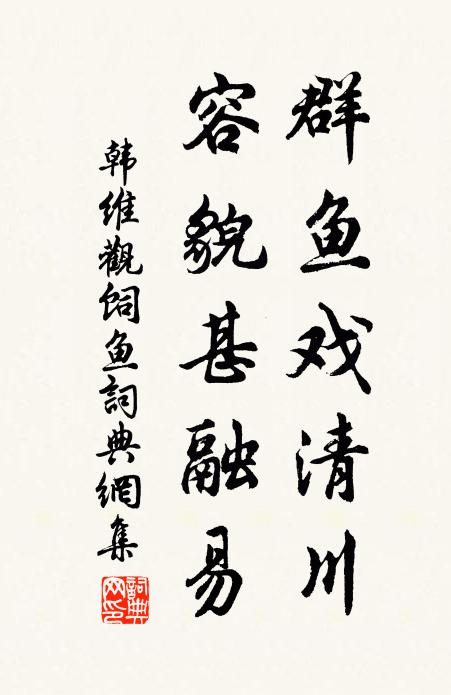 群鱼戏清川
容貌甚融易
韩维觀饲鱼詞典網集
詞典网印